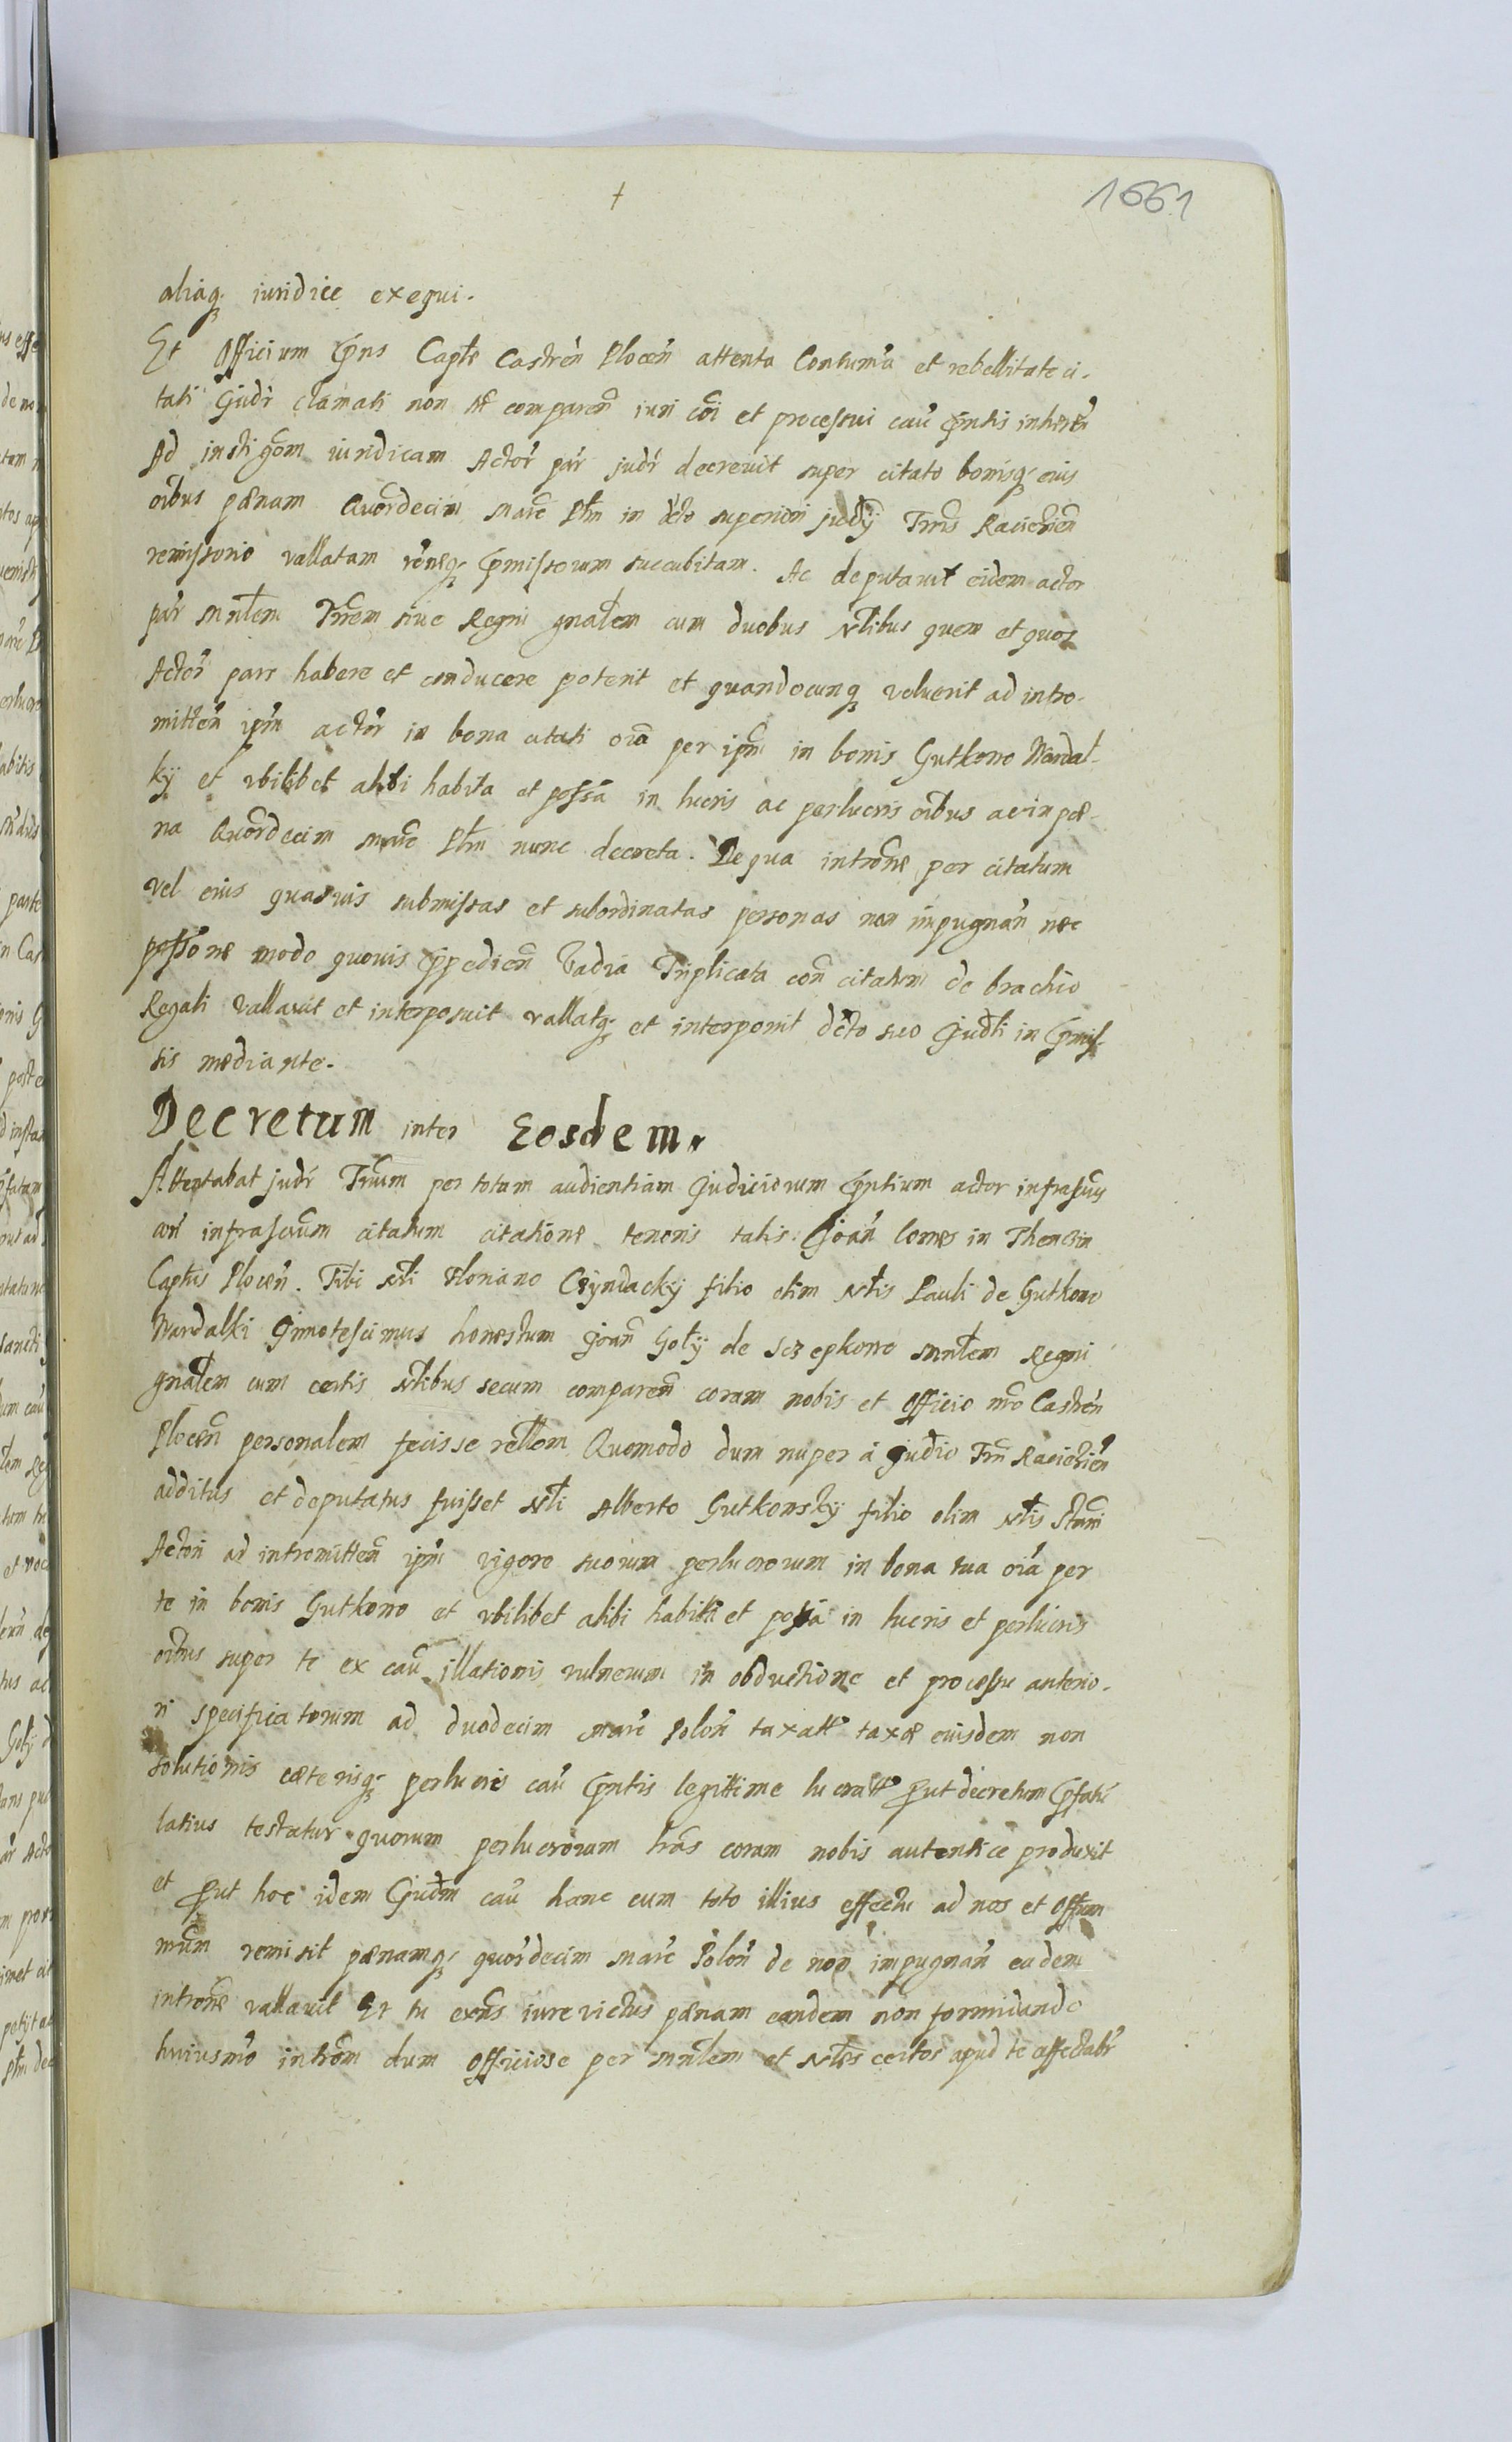 †
1661
aliaq; iuridice exequi.
Et Officium Pñs Capłe Castreñ Ploceñ attenta Contuma et rebellitate ci-
tati Judr clamati non comparen iuri coi et processui cau pntis inheren
Ad instigom iuridicam Actor par judr decreuit super citato bonisq; eius
oibus pænam Quordecim Marc Pln in dcto superiori judy Trris Racieznen
remissorio vallatam róneq; pmissorum succubitam. Ac deputauit eidem actor
par Mnłem Trrem siue Regni gnałem cum duobus Nłibus quem et quos
Actor pars habere et conducere poterit et quandocunq; voluerit ad intro-
mitten ipm actor in bona citati oia per ipm in bonis Gutkowo Wardal-
ky et vbilibet alibi habita et possa in lucris ac perlucris oibus ac in pæ-
na Quordecim Marc Pln nunc decreta. De qua introne per citatum
vel eius quasuis submissas et subordinatas personas non impugnan nec
possone modo quouis ppedien Vadia Triplicata con citatum de brachio
Regali vallauit et interposuit vallatq; et interponit dcto suo Judli in pmis-
sis mediante.
Decretum inter Eosdem.
Attentabat judr Trrum per totam audientiam Judiciorum pntium actor infrascrus
con infrascrum citatum citatione tenoris talis: Joan Comes in Thenczin
Captus Plocen. Tibi Nłi Floriano filio olim Nłis Pauli de Gutkowo
Wardalki Innotescimus honestum Joan Goły de Sczepkowo Mnłem Regni
gnałem cum certis Nłibus secum comparen coram nobis et Officio nro Castren
Plocen personalem fecisse rellom Quomodo dum nuper a Judio Trri Racieznen
additus et deputatus fuisset Nłi Alberto Gutkowsky filio olim Nłis Stani
Actori ad intromitten ipm vigore suorum perlucrorum in bona tua oia per
te in bonis Gutkowo et vbilibet alibi habita et possa in lucris et perlucris
oibus super te ex cau illationis vulnerum in obductione et processu anterio-
ri specificatorum ad duodecim Marc Polon taxat taxæ eiusdem non
solutionis cæterisq; perlucris cau pntis legittime lucrat put decretum pfati
latius testatur quorum perlucrorum lras coram nobis autentice produxit
et put hoc idem Judm cau hanc cum toto illius effectu ad nos et Offium
nrum remisit pænamq; quordecim Marc Polon de non impugnan eadem
introne vallauit Et tu exns iure victus pænam eandem non formidando
huiusmo introm dum Officiose per Mnłem et Nłes certos apud te affectabr